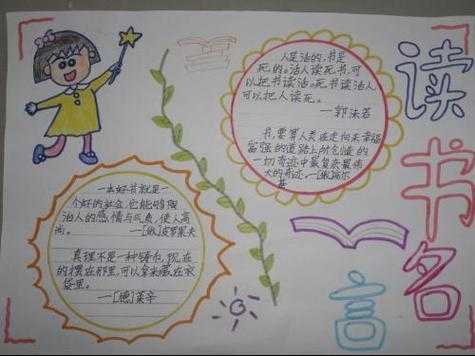 读
书
名
言
人是活的,书是
死的。活人读死书,可
以把书读活。死书读活人
可以把人读死。
—郭沫若
书,要算人类在走向未来幸福
富强的道路上所创造的
一切奇迹中最复杂最伟
大的奇迹。—[俄]高尔
基
一本好书就是一
个好的社会,它能够陶
冶人的感情与气质,使人高
尚。—[俄]皮罗果夫
真理不是一种铸币,现在
的摆在那里,可以拿来藏在衣
袋里。
—[德]莱辛